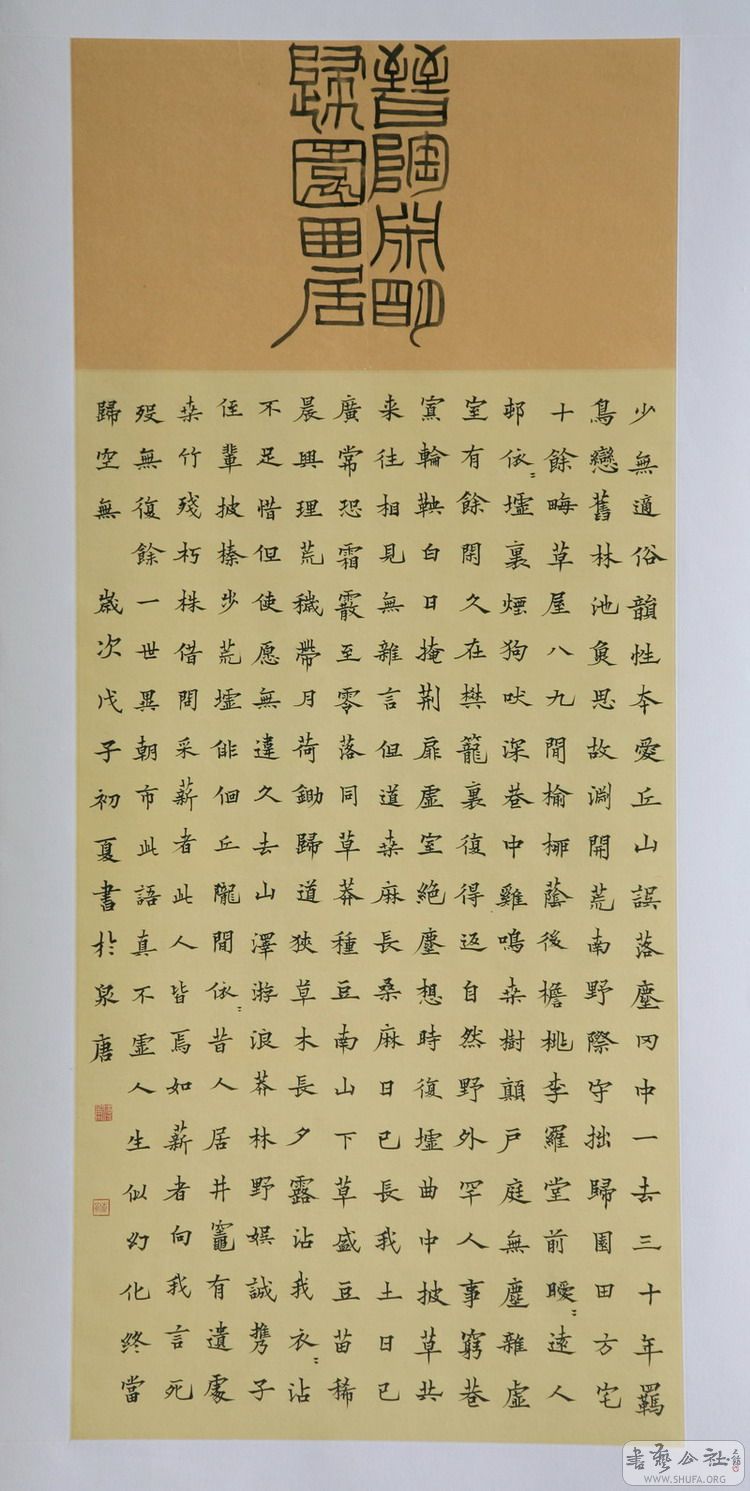 晉陶淵明
歸園田居
少無適俗韻性本愛丘山誤落塵网中一去三十年羈
鳥戀舊林池魚思故淵開荒南野際守拙歸園田方宅
十餘畮草屋八九間榆柳蔭後檐桃李羅堂前曖〻遠人
邨依〻墟裏煙狗吠深巷中雞鳴桑樹顛戶庭無塵雜虛
室有餘閑久在樊籠裏復得返自然野外罕人事窮巷
寡輪鞅白日掩荆扉虛室絕塵想時復墟曲中披草共
来往相見無雜言但道桑麻長桑麻日已長我土日已
廣常恐霜霰至零落同草莽種豆南山下草盛豆苗稀
晨興理荒穢帶月荷鋤歸道狹草木長夕露沾我衣〻沾
不足惜但使愿無違久去山澤游浪莽林野娛誠携子
侄輩披榛步荒墟徘徊丘隴間依〻昔人居井竈有遺處
桑竹殘朽株借問采薪者此人皆焉如薪者向我言死
歿無復餘一世異朝市此語真不虛人生似幻化終當
歸空無 歲次戊子初夏書於泉唐
書藝公社
WWW.SHUFA.ORG